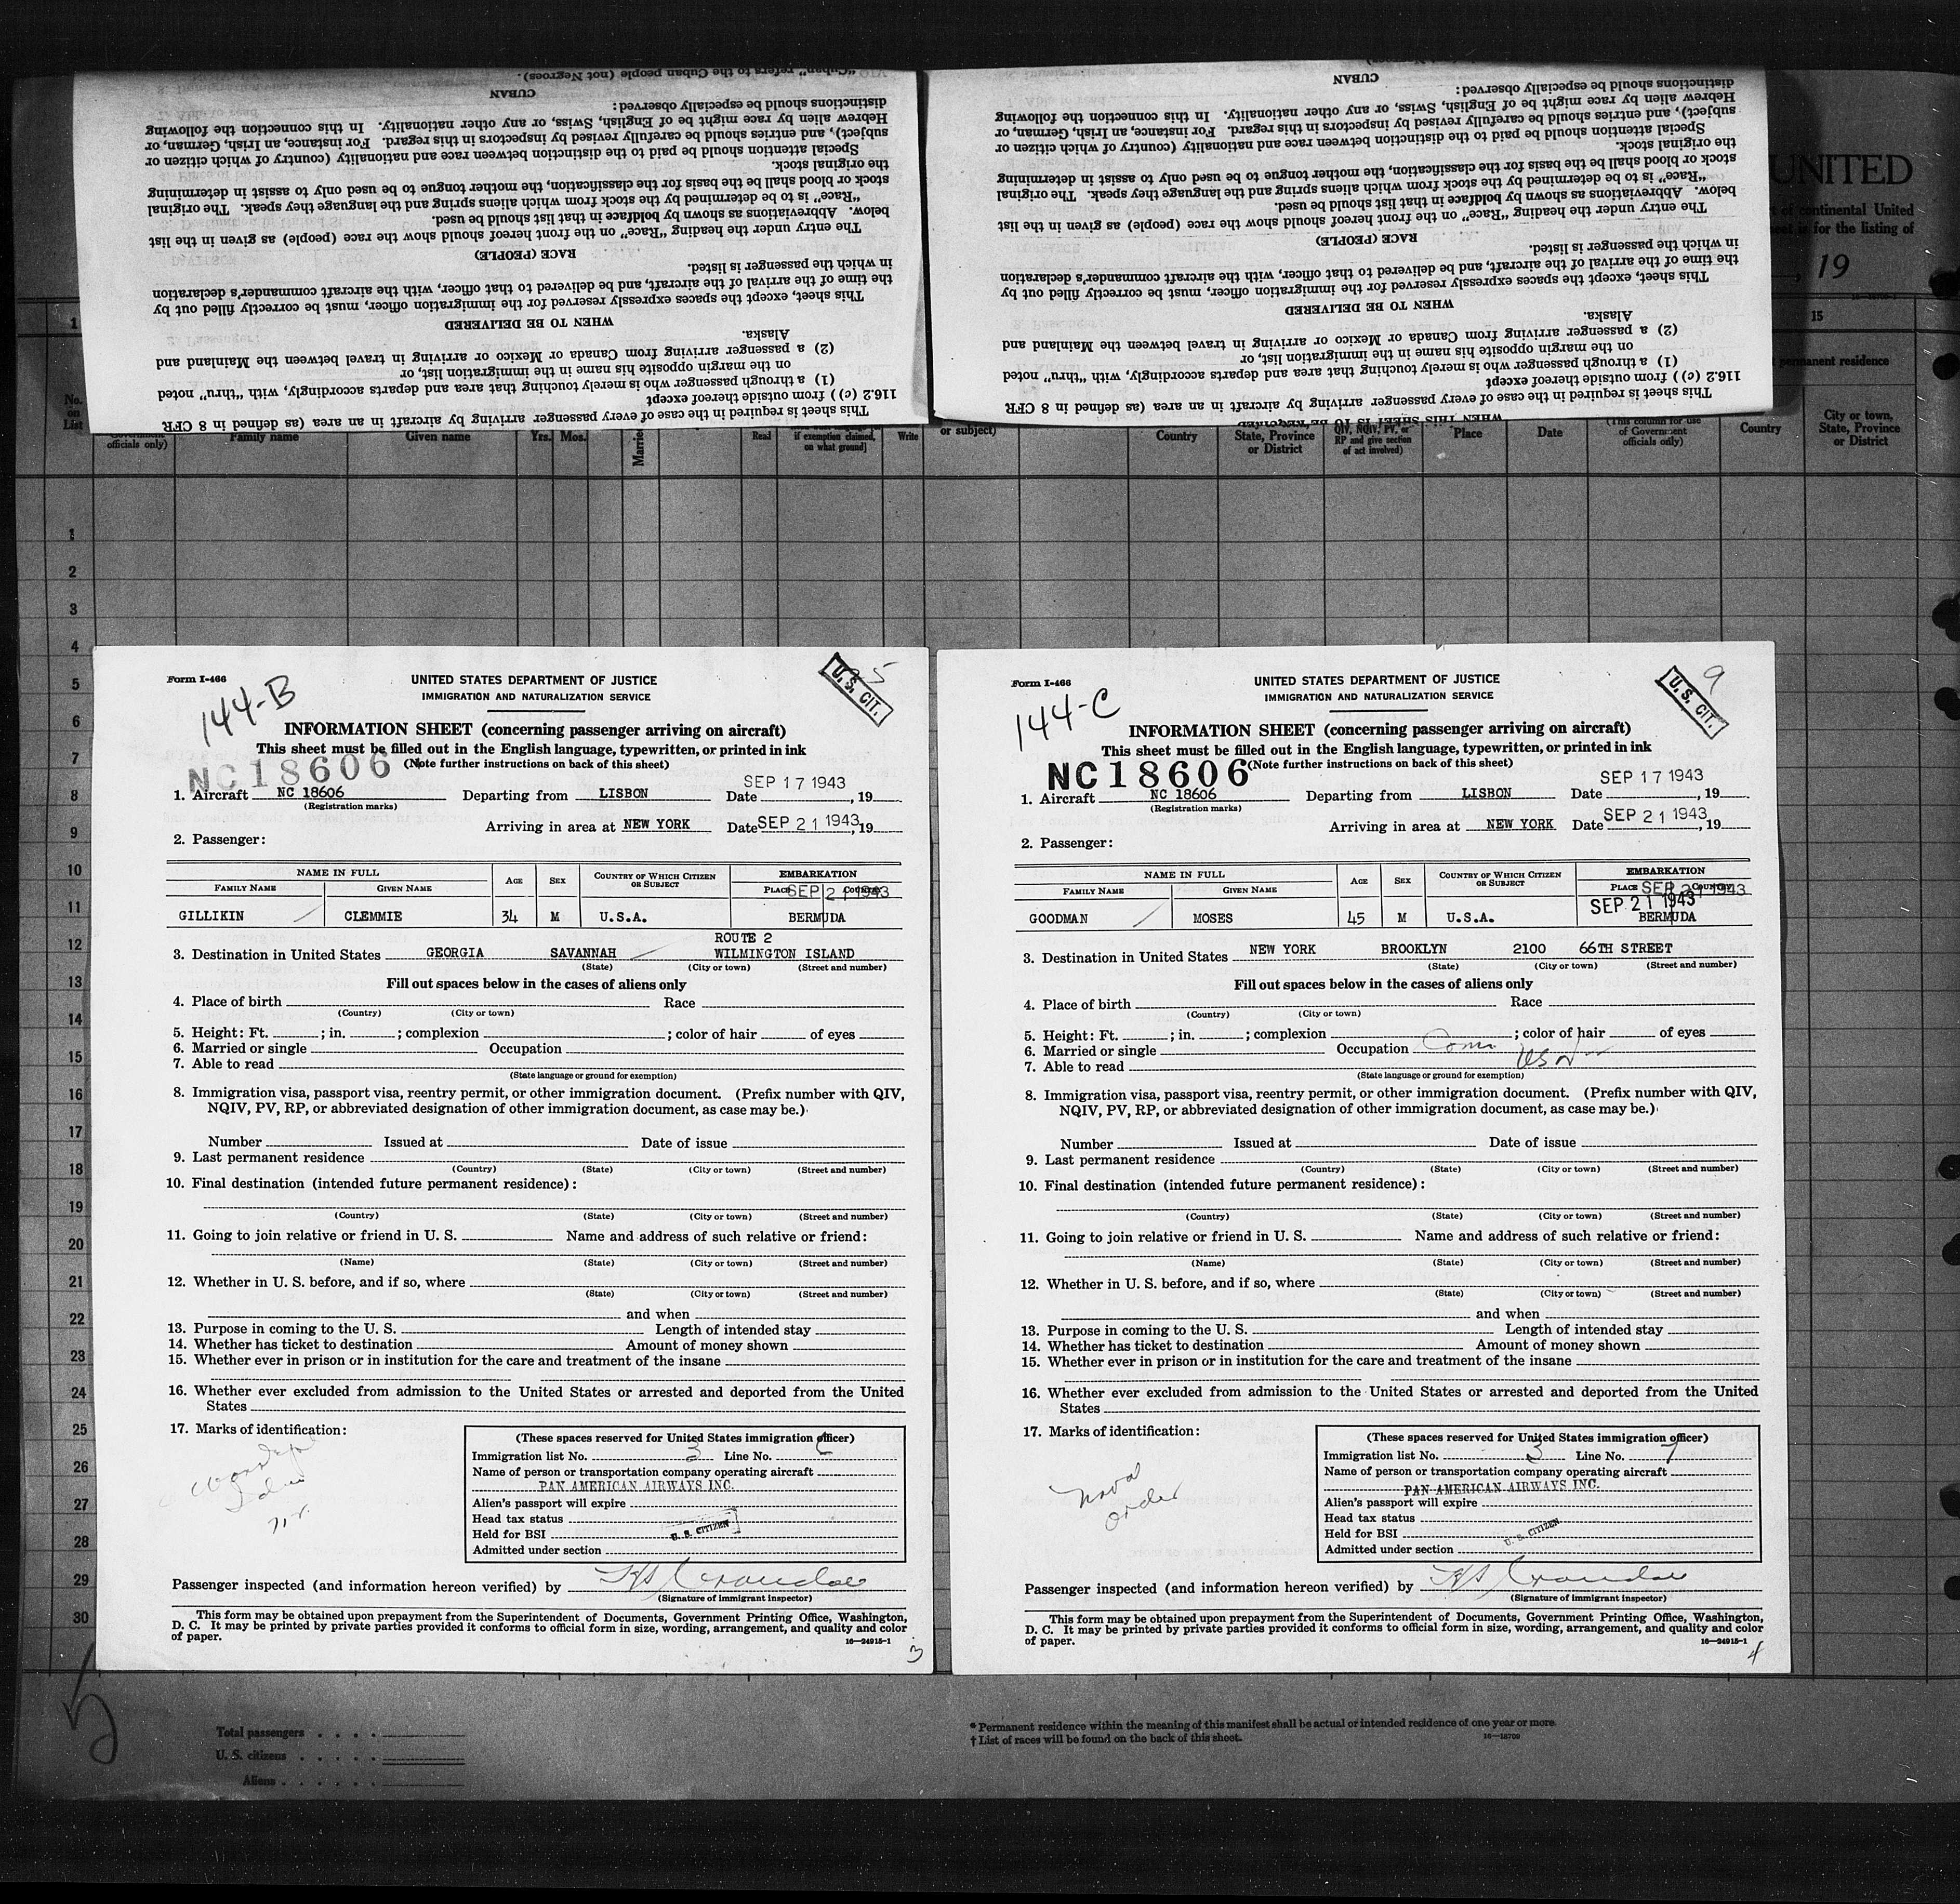 "Cuban" refers to the Cuban people (not Negroes).
CUBAN
distinctions should be especially observed:
Hebrew alien by race might be of English, Swiss, or any other nationality. In this connection the following
subject), and entries should be carefully revised by inspectors in this regard. For instance, an Irish, German, or
Special attention should be paid to the distinction between race and nationality (country of which citizen or
the original stock.
stock or blood shall be the basis for the classification, the mother tongue to be used only to assist in determining
"Race" is to be determined by the stock from which aliens spring and the language they speak. The original
below. Abbreviations as shown by boldface in that list should be used.
The entry under the heading "Race" on the front hereof should show the race (people) as given in the list
RACE (PEOPLE)
in which the passenger is listed.
the time of the arrival of the aircraft, and be delivered to that officer, with the aircraft commander's declaration
This sheet, except the spaces expressly reserved for the immigration officer, must be correctly filled out by
WHEN TO BE DELIVERED
Alaska.
(2) a passenger arriving from Canada or Mexico or arriving in travel between the Mainland and
on the margin opposite his name in the immigration list, or
(1) a through passenger who is merely touching that area and departs accordingly, with "thru" noted
116.2 (c)) from outside thereof except
This sheet is required in the case of every passenger arriving by aircraft in an area (as defined in 8 CFR
CUBAN
distinctions should be especially observed:
Hebrew alien by race might be of English, Swiss, or any other nationality. In this connection the following
subject), and entries should be carefully revised by inspectors in this regard. For instance, an Irish, German, or
Special attention should be paid to the distinction between race and nationality (country of which citizen or
the original stock.
stock or blood shall be the basis for the classification, the mother tongue to be used only to assist in determining
"Race" is to be determined by the stock from which aliens spring and the language they speak. The original
below. Abbreviations as shown by boldface in that list should be used.
The entry under the heading "Race" on the front hereof should show the race (people) as given in the list
RACE (PEOPLE)
in which the passenger is listed.
the time of the arrival of the aircraft, and be delivered to that officer, with the aircraft commander's declaration
This sheet, except the spaces expressly reserved for the immigration officer, must be correctly filled out by
WHEN TO BE DELIVERED
Alaska.
(2) a passenger arriving from Canada or Mexico or arriving in travel between the Mainland and
on the margin opposite his name in the immigration list, or
(1) a through passenger who is merely touching that area and departs accordingly, with "thru" noted
116.2 (c)) from outside thereof except
This sheet is required in the case of every passenger arriving by aircraft in an area (as defined in 8 CFR
WHEN THIS SHEET IS TO BE REQUIRED
UNITED
of continental United
is for the listing of
, 19
1
15
permanent residence
No. on List
Government officials only)
Family name
Given name
Yrs.
Mos.
Married
Read
if exemption claimed, on what ground]
Write
or subject)
Country
State, Province or District
QIV, NQIV, PV, or RP and give section of act involved)
Place
Date
(This column for use of Government officials only)
Country
City or town, State, Province or District
1
2
3
4
5
6
7
8
9
10
11
12
13
14
15
16
17
18
19
20
21
22
23
24
25
26
27
28
29
30
Form I-466
144-B
UNITED STATES DEPARTMENT OF JUSTICE
IMMIGRATION AND NATURALIZATION SERVICE
U. S. CIT.
INFORMATION SHEET (concerning passenger arriving on aircraft)
This sheet must be filled out in the English language, typewritten, or printed in ink
NC18606
(Note further instructions on back of this sheet)
1. Aircraft NC 18606 Departing from LISBON Date SEP 17 1943, 19
(Registration marks)
Arriving in area at NEW YORK Date SEP 21 1943, 19
2. Passenger:
NAME IN FULL
FAMILY NAME GIVEN NAME AGE SEX COUNTRY OF WHICH CITIZEN OR SUBJECT EMBARKATION
PLACE COUNTRY
SEP 21 1943
GILLIKIN CLEMMIE 34 M U.S.A. BERMUDA
ROUTE 2
3. Destination in United States GEORGIA SAVANNAH WILMINGTON ISLAND
(State) (City or town) (Street and number)
Fill out spaces below in the cases of aliens only
4. Place of birth Race
(Country) (City or town)
5. Height: Ft. ; in. ; complexion ; color of hair of eyes
6. Married or single Occupation
7. Able to read
(State language or ground for exemption)
8. Immigration visa, passport visa, reentry permit, or other immigration document. (Prefix number with QIV,
NQIV, PV, RP, or abbreviated designation of other immigration document, as case may be.)
Number Issued at Date of issue
9. Last permanent residence
(Country) (State) (City or town) (Street and number)
10. Final destination (intended future permanent residence):
(Country) (State) (City or town) (Street and number)
11. Going to join relative or friend in U. S. Name and address of such relative or friend:
(Name) (State) (City or town) (Street and number)
12. Whether in U. S. before, and if so, where
(State) (City or town) (Street and number)
and when
13. Purpose in coming to the U. S. Length of intended stay
14. Whether has ticket to destination Amount of money shown
15. Whether ever in prison or in institution for the care and treatment of the insane
16. Whether ever excluded from admission to the United States or arrested and deported from the United
States
17. Marks of identification:
(These spaces reserved for United States immigration officer)
Immigration list No. 3 Line No. 6
Name of person or transportation company operating aircraft
PAN AMERICAN AIRWAYS INC.
Alien's passport will expire
Head tax status
U. S. CITIZEN
Held for BSI
Admitted under section
Passenger inspected (and information hereon verified) by
(Signature of immigrant inspector)
This form may be obtained upon prepayment from the Superintendent of Documents, Government Printing Office, Washington,
D. C. It may be printed by private parties provided it conforms to official form in size, wording, arrangement, and quality and color
of paper.
16—24915-1
3
Form I-466
144-C
UNITED STATES DEPARTMENT OF JUSTICE
IMMIGRATION AND NATURALIZATION SERVICE
9
U. S. CIT.
INFORMATION SHEET (concerning passenger arriving on aircraft)
This sheet must be filled out in the English language, typewritten, or printed in ink
NC18606
(Note further instructions on back of this sheet)
1. Aircraft NC 18606 Departing from LISBON Date SEP 17 1943, 19
(Registration marks)
Arriving in area at NEW YORK Date SEP 21 1943, 19
2. Passenger:
NAME IN FULL
FAMILY NAME GIVEN NAME AGE SEX COUNTRY OF WHICH CITIZEN OR SUBJECT EMBARKATION
PLACE COUNTRY
SEP 21 1943
SEP 21 1943
GOODMAN MOSES 45 M U.S.A. BERMUDA
3. Destination in United States NEW YORK BROOKLYN 2100 66TH STREET
(State) (City or town) (Street and number)
Fill out spaces below in the cases of aliens only
4. Place of birth Race
(Country) (City or town)
5. Height: Ft. ; in. ; complexion ; color of hair of eyes
6. Married or single Occupation
7. Able to read
(State language or ground for exemption)
8. Immigration visa, passport visa, reentry permit, or other immigration document. (Prefix number with QIV,
NQIV, PV, RP, or abbreviated designation of other immigration document, as case may be.)
Number Issued at Date of issue
9. Last permanent residence
(Country) (State) (City or town) (Street and number)
10. Final destination (intended future permanent residence):
(Country) (State) (City or town) (Street and number)
11. Going to join relative or friend in U. S. Name and address of such relative or friend:
(Name) (State) (City or town) (Street and number)
12. Whether in U. S. before, and if so, where
(State) (City or town) (Street and number)
and when
13. Purpose in coming to the U. S. Length of intended stay
14. Whether has ticket to destination Amount of money shown
15. Whether ever in prison or in institution for the care and treatment of the insane
16. Whether ever excluded from admission to the United States or arrested and deported from the United
States
17. Marks of identification:
order
(These spaces reserved for United States immigration officer)
Immigration list No. 3 Line No. 7
Name of person or transportation company operating aircraft
PAN AMERICAN AIRWAYS INC.
Alien's passport will expire
Head tax status
U. S. CITIZEN
Held for BSI
Admitted under section
Passenger inspected (and information hereon verified) by
(Signature of immigrant inspector)
This form may be obtained upon prepayment from the Superintendent of Documents, Government Printing Office, Washington,
D. C. It may be printed by private parties provided it conforms to official form in size, wording, arrangement, and quality and color
of paper.
16—24915-1
4
5
Total passengers
U. S. citizens
Aliens
* Permanent residence within the meaning of this manifest shall be actual or intended residence of one year or more.
† List of races will be found on the back of this sheet.
16—18709